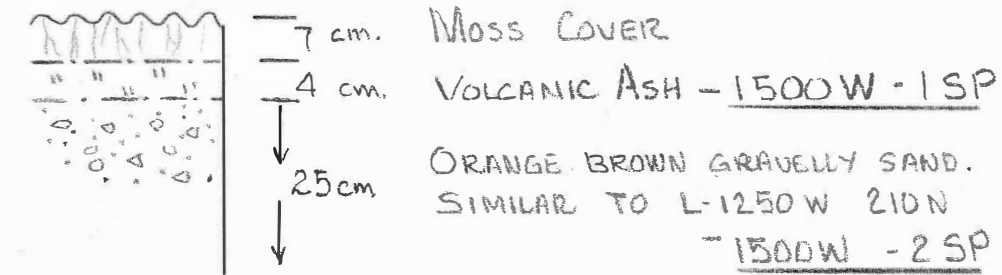 7 cm. MOSS COVER
4 cm. VOLCANIC ASH - 1500W - 1 SP
25 cm ORANGE BROWN GRAVELLY SAND.
SIMILAR TO L-1250 W 210N
- 1500W - 2 SP